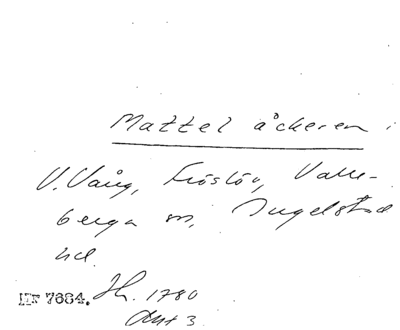 Mattel åckeren i
V. Vång, Fröslöv, Valle-
berga sn, Ingelstad
hd.
HF 7684. Jh. 1780
Akt 3